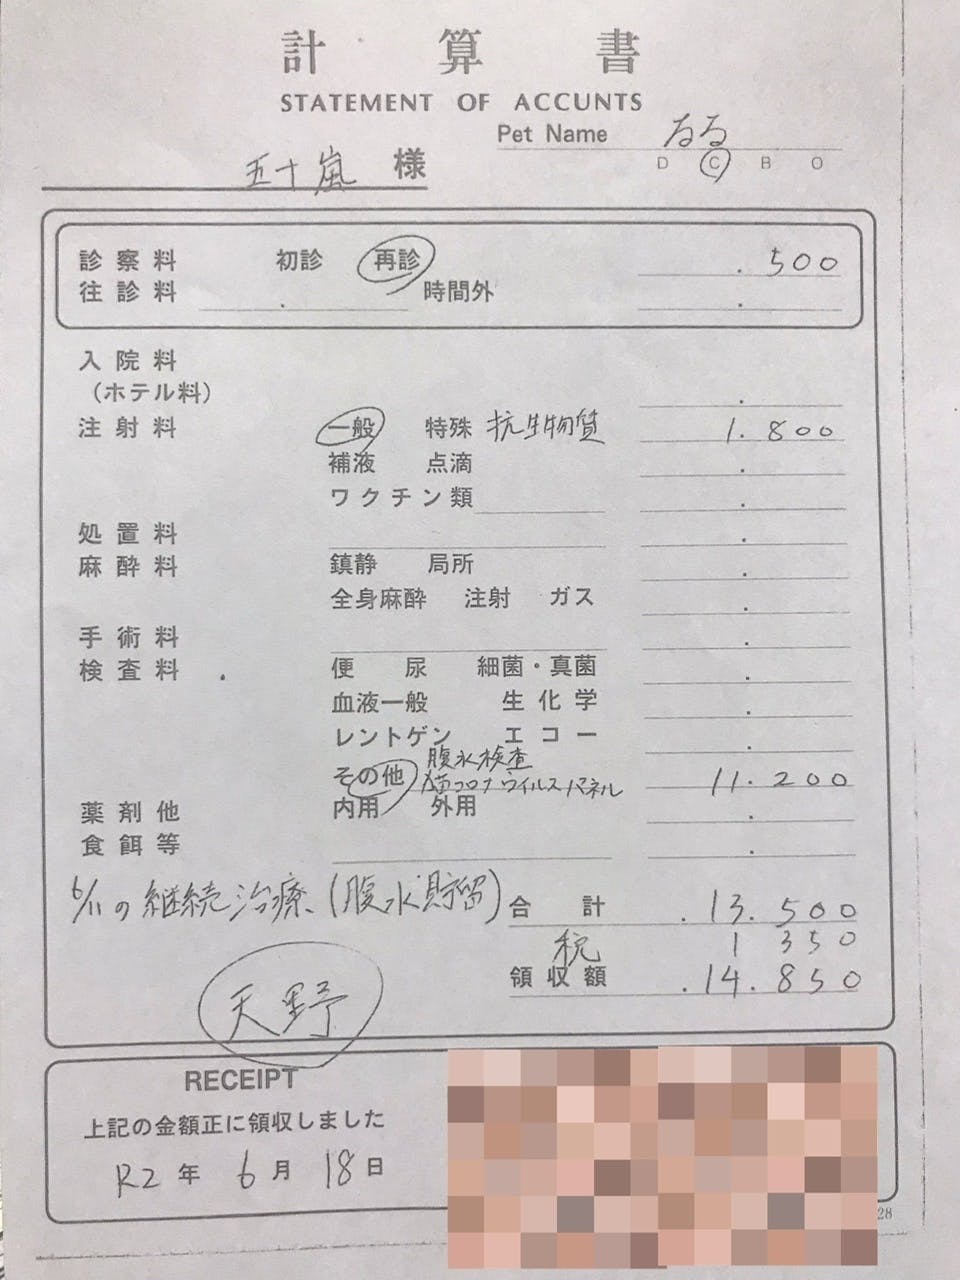 計算書
STATEMENT OF ACCUNTS
Pet Name るる
D C B O
五十嵐 様
診察料 初診 再診 .500
往診料 . 時間外 .
入院料
(ホテル料) .
注射料 一般 特殊 抗生物質 1.800
補液 点滴 .
ワクチン類 .
処置料 .
麻酔料 鎮静 局所 .
全身麻酔 注射 ガス .
手術料 .
検査料 . 便 尿 細菌・真菌 .
血液一般 生化学 .
レントゲン エコー .
腹水検査
その他 猫コロナウイルスパネル 11.200
薬剤他 内用 外用 .
食餌等 .
6/11の継続治療、(腹水貯留) 合計 .13.500
税 1 350
領収額 .14.850
天野
RECEIPT
上記の金額正に領収しました
R2年 6月 18日
28